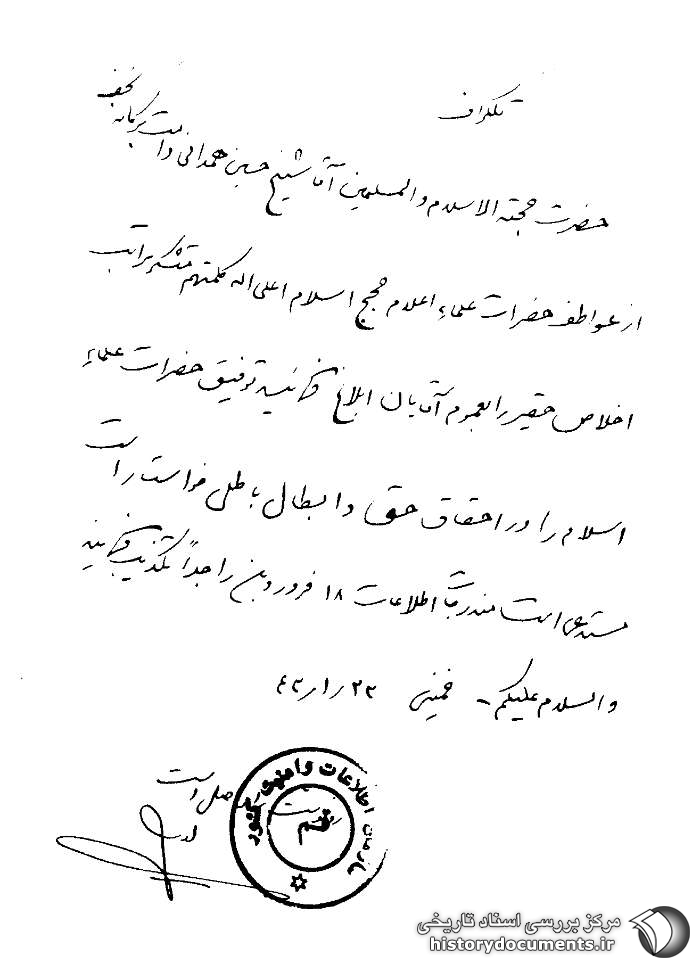 تلگراف
نجف
حضرت حجة الاسلام والمسلمین آقا شیخ حسین همدانی دامت برکاته
از عواطف حضرات علماء اعلام حجج اسلام اعلی اله کلمتهم متشکر مراتب
اخلاص حقیر را بعموم آقایان ابلاغ فرمائید توفیق حضرات علماء
اسلام را در احقاق حق و ابطال باطل خواستار است
مستدعی است مندرجات اطلاعات ۱۸ فروردین را جداً تکذیب فرمائید
والسلام علیکم - خمینی ۴۳/۱/۲۳
اصل است
سازمان اطلاعات و امنیت کشور
قم
مرکز بررسی اسناد تاریخی
historydocuments.ir